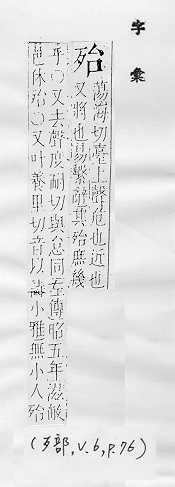 字彙
殆 蕩海切臺上聲危也近也
又將也易繫辭其殆庶幾
乎〇又去聲度耐切與怠同左傳昭五年滋敝
邑休殆〇又叶養里切音以詩小雅無小人殆
(歹部, v.6, p.76)